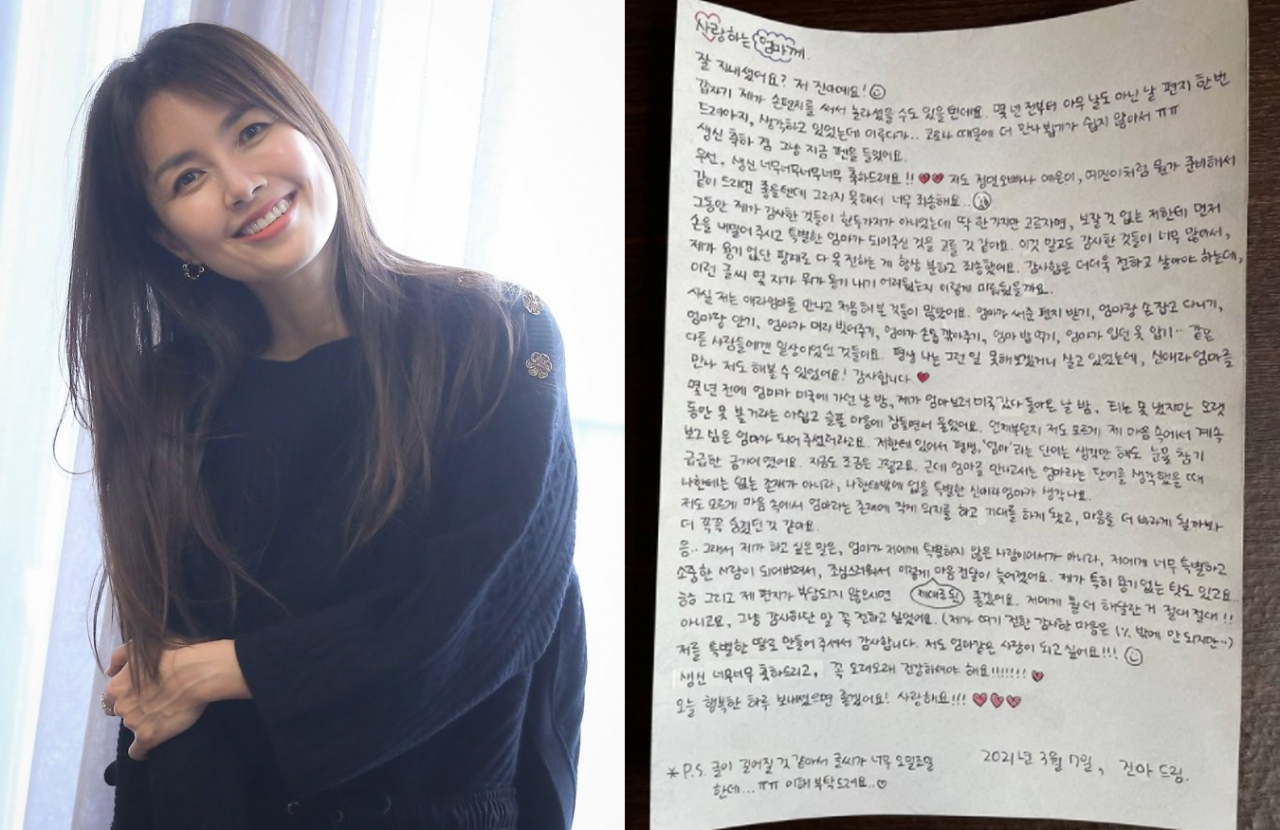 사랑하는 엄마께.
잘 지내셨어요? 저 진아예요!
갑자기 제가 손편지를 써서 놀라셨을 수도 있을텐데요. 몇 년 전부터 아무 날도 아닌 날 편지 한번
드려야지, 생각하고 있었는데 이루다가... 코로나 때문에 더 만나뵙기가 쉽지 않아서 ㅠㅠ
생신 축하 겸 그냥 지금 펜을 들었어요.
우선, 생신 너무너무너무너무 축하드려요!! 저도 정민오빠나 예은이, 예진이처럼 뭔가 준비해서
같이 드리면 좋을텐데 그러지 못해서 너무 죄송해요..
그동안 제가 감사한 것들이 한두가지가 아니었는데 딱 한가지만 고르자면, 보잘 것 없는 저한테 먼저
손을 내밀어 주시고 특별한 엄마가 되어주신 것을 고를 것 같아요. 이것 말고도 감사한 것들이 너무 많아서,
제가 용기 없단 핑계로 다 못 전하는 게 항상 분하고 죄송했어요. 감사함은 더더욱 전하고 살아야 하는데,
이런 글씨 몇 자가 뭐가 용기 내기 어려웠는지 이렇게 미뤄뒀을까요.
사실 저는 애라엄마를 만나고 처음 해본 것들이 많았어요. 엄마가 써준 편지 받기, 엄마랑 손 잡고 다니기,
엄마랑 안기, 엄마가 머리 빗어주기, 엄마가 손톱 깎아주기, 엄마 밥 먹기, 엄마가 입던 옷 입기.. 같은
다른 사람들에겐 일상이었던 것들이요. 평생 나는 그런 일 못해보겠거니 살고 있었는데, 신애라엄마를
만나 저도 해볼 수 있었어요! 감사합니다
몇 년 전에 엄마가 미국에 가신 날 밤, 제가 엄마보러 미국 갔다 돌아온 날 밤, 티는 못 냈지만 오랫
동안 못 볼 거라는 아쉽고 슬픈 마음에 잠들면서 울었어요. 언제부턴지 저도 모르게 제 마음 속에서 계속
보고 싶은 엄마가 되어 주셨더라고요. 저한테 있어서 평생, '엄마'라는 단어는 생각만 해도 눈물 참기
급급한 공기여였어요. 지금도 조금은 그렇고요. 근데 엄마를 만나고서는 엄마라는 단어를 생각했을 때
나한테는 없는 존재가 아니라, 나한테밖에 없을 특별한 신애라엄마가 생각나요.
저도 모르게 마음 속에서 엄마라는 존재에 작게 의지를 하고 기대를 하게 됐고, 마음을 더 바라게 될까봐
더 꼭꼭 숨겼던 것 같아요.
음.. 그래서 제가 하고 싶은 말은, 엄마가 저에게 특별하지 않은 사람이어서가 아니라, 저에게 너무 특별하고
소중한 사람이 되어버려서, 조심스러워서 이렇게 마음 전달이 늦어졌어요. 제가 특히 용기 없는 탓도 있고요..
흠흠 그리고 제 편지가 부담되지 않으시면 제대로된 좋겠어요. 저에게 뭘 더 해달란 거 절대 절대!!
아니고요, 그냥 감사하단 말 꼭 전하고 싶었어요. (제가 여기 전한 감사한 마음은 1% 밖에 안 되지만..)
저를 특별한 딸로 만들어 주셔서 감사합니다. 저도 엄마같은 사람이 되고 싶어요!!!
생신 너무너무 축하드리고, 꼭 오래오래 건강하셔야 해요!!!!!!!
오늘 행복한 하루 보내셨으면 좋겠어요! 사랑해요!!!
2021년 3월 7일, 진아 드림.
*P.S. 글이 길어질 것 같아서 글씨가 너무 오밀조밀
한데... ㅠㅠ 이해 부탁드려요..